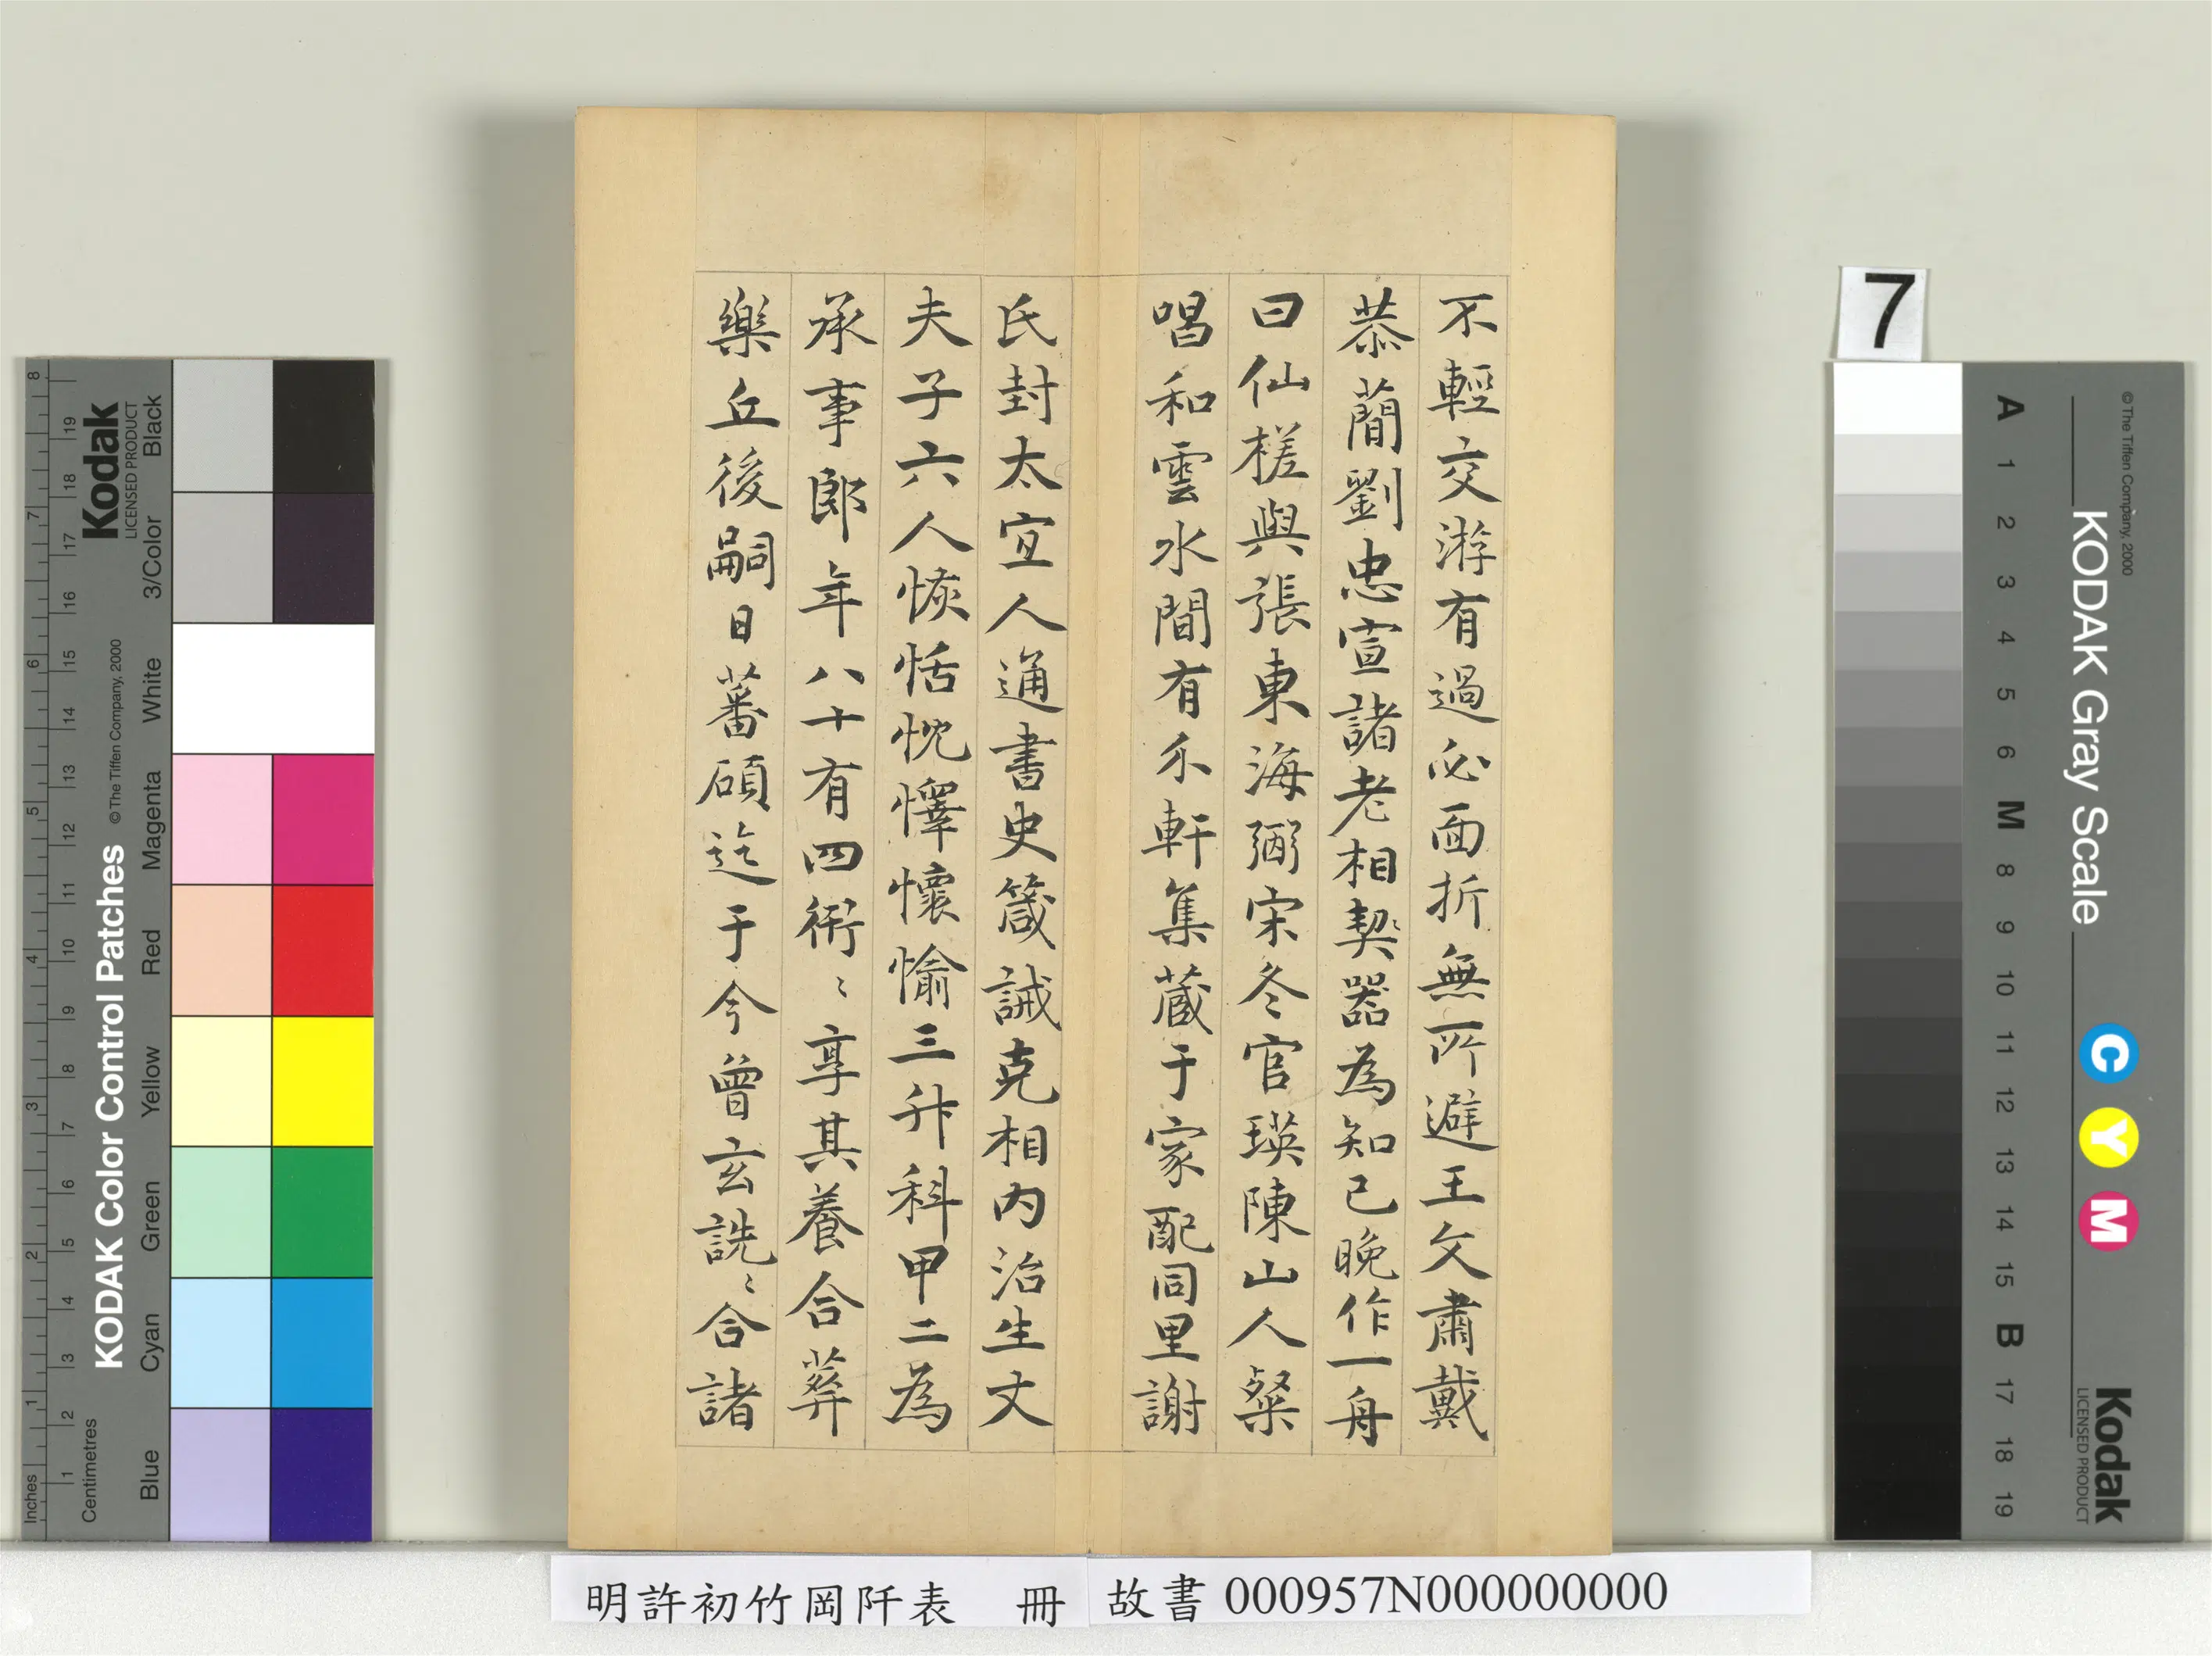 不輕交游有過必面折無所避王文肅戴
恭簡劉忠宣諸老相契器為知己晚作一舟
曰仙槎與張東海弼宋冬官瑛陳山人粲
唱和雲水間有乐軒集藏于家配同里謝
氏封太宜人通書史箴誡克相內治生丈
夫子六人恢恬忱懌懷愉三升科甲二為
承事郎年八十有四衎〻享其養合葬
樂丘後嗣日蕃碩迄于今曾玄詵〻合諸
7
明許初竹岡阡表 冊
故書 000957N000000000
Kodak
LICENSED PRODUCT
KODAK Color Control Patches
© The Tiffen Company, 2000
Inches
1 2 3 4 5 6 7 8
Centimetres
1 2 3 4 5 6 7 8 9 10 11 12 13 14 15 16 17 18 19
Blue
Cyan
Green
Yellow
Red
Magenta
White
3/Color
Black
KODAK Gray Scale
© The Tiffen Company, 2000
Kodak
LICENSED PRODUCT
C
Y
M
A 1 2 3 4 5 6 M 8 9 10 11 12 13 14 15 B 17 18 19